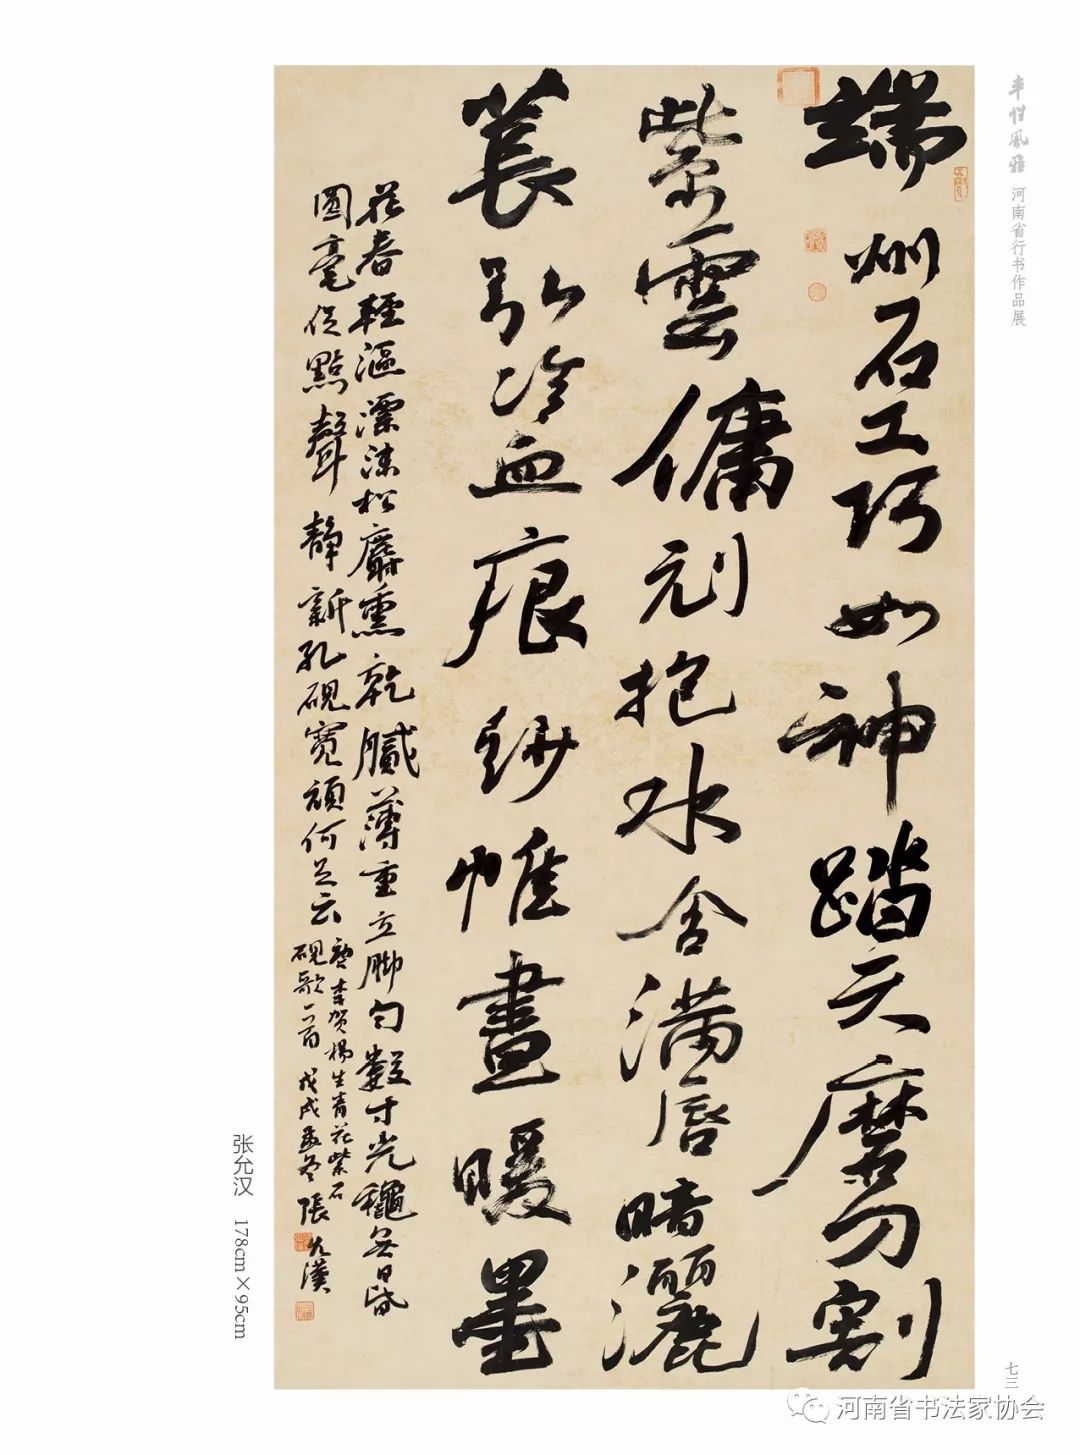 風雅 河南省行书作品展
端州石工巧如神踏天磨刀割
紫雲傭刓抱水含滿唇暗灑
萇弘冷血痕紗帷晝暖墨
花春輕漚漂沫松麝熏乾膩薄重立脚勻數寸光龝無日昏
圓毫促點聲靜新孔硯寬頑何足云
李贺楊生青花紫石
硯歌一首 戊戌孟冬 張允漢
张允汉 178cm×95cm
七三
河南省书法家协会